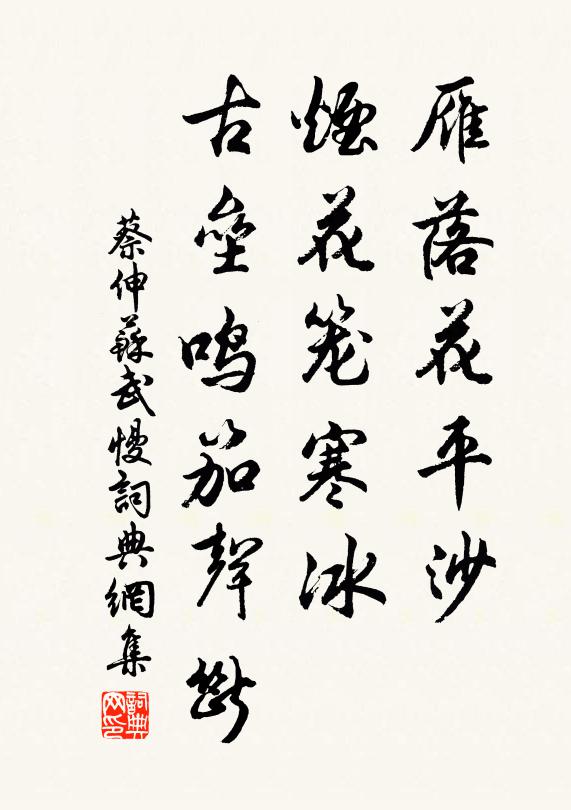 雁落花平沙
煙花笼寒冰
古垒鳴笳聲斷
蔡伸蘇武慢詞典網集
詞典网印